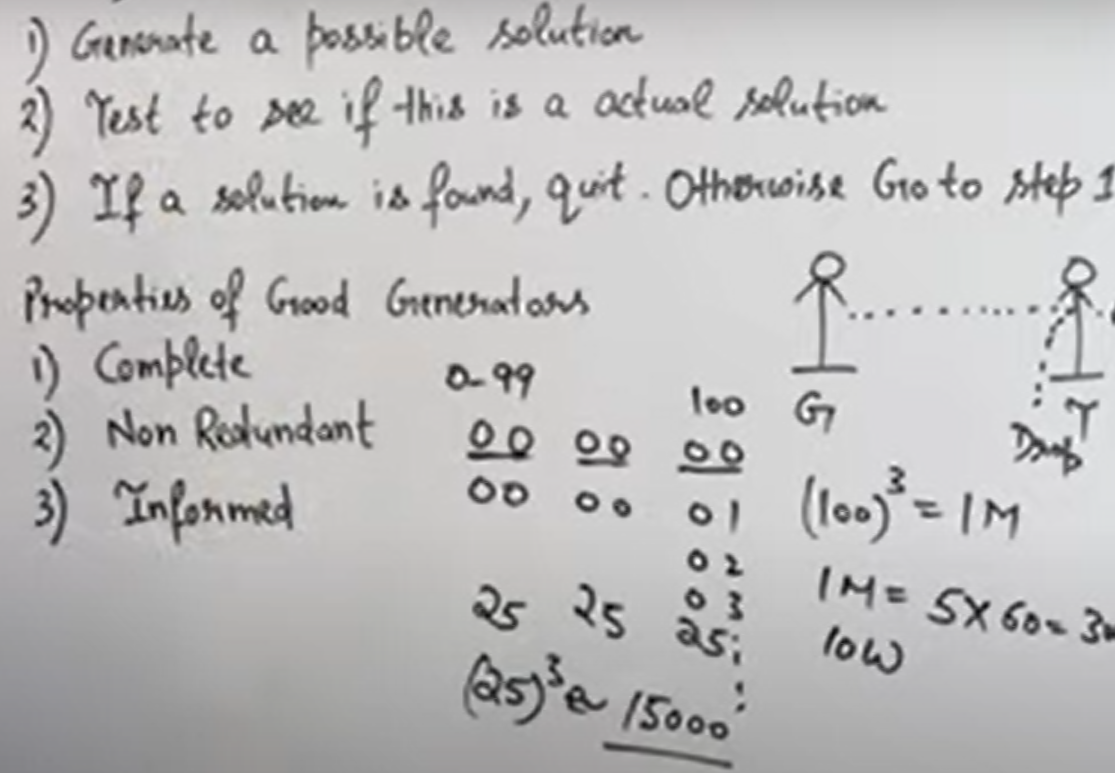 1) Generate a possible solution
2) Test to see if this is a actual solution
3) If a solution is found, quit. Otherwise Go to step 1
Properties of Good Generators
1) Complete
2) Non Redundant
3) Informed
0-99
100
00 00 00
00 00 01
02
03
25 25 25
(25)³ ≈ 15000
G
T
Drop
(100)³ = 1M
1M = 5X60=
10W